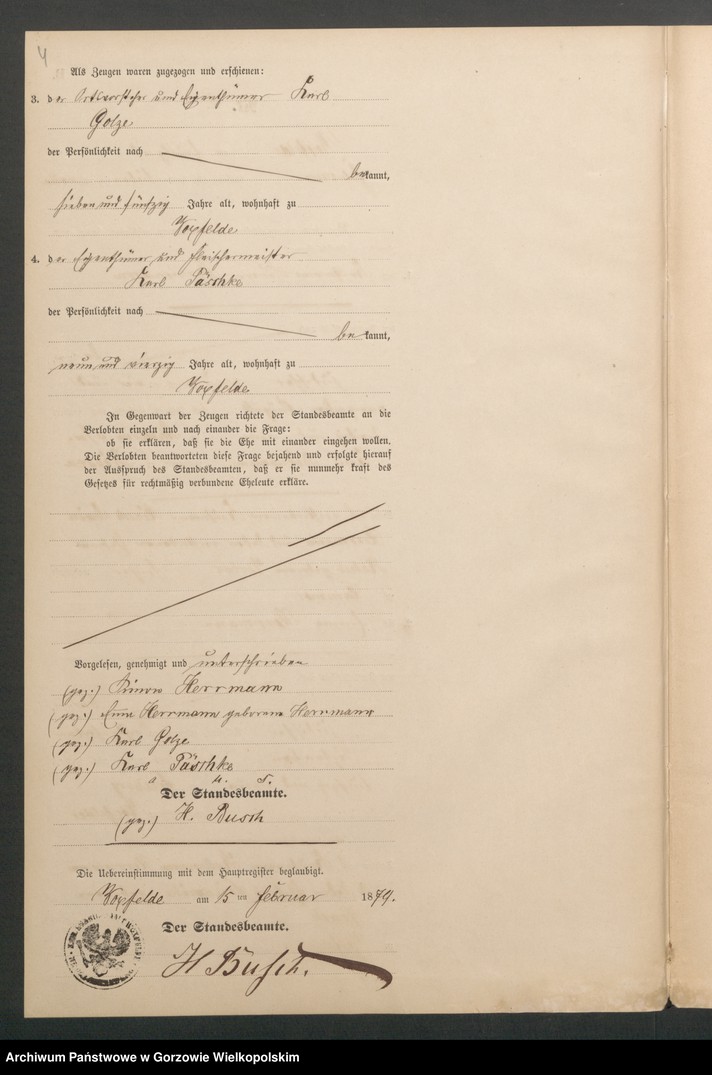 4
Als Zeugen waren zugezogen und erschienen:
3. der Ortsvorsteher und Eigenthümer Karl
Golze
der Persönlichkeit nach
bekannt,
sieben und fünfzig Jahre alt, wohnhaft zu
Woxfelde
4. der Eigenthümer und Fleischermeister
Karl Päschke
der Persönlichkeit nach
bekannt,
neun und vierzig Jahre alt, wohnhaft zu
Woxfelde
In Gegenwart der Zeugen richtete der Standesbeamte an die
Verlobten einzeln und nach einander die Frage:
ob sie erklären, daß sie die Ehe mit einander eingehen wollen.
Die Verlobten beantworteten diese Frage bejahend und erfolgte hierauf
der Ausspruch des Standesbeamten, daß er sie nunmehr kraft des
Gesetzes für rechtmäßig verbundene Eheleute erkläre.
Vorgelesen, genehmigt und unterschrieben
(gez.) Herrmann
(gez.) Herrmann geborene Herrmann
(gez.) Karl Golze
(gez.) Karl Päschke
a. u. s.
Der Standesbeamte.
(gez.) H. Busch
Die Uebereinstimmung mit dem Hauptregister beglaubigt.
Woxfelde am 15 ten Februar 1879.
Der Standesbeamte.
H Busch.
Archiwum Państwowe w Gorzowie Wielkopolskim